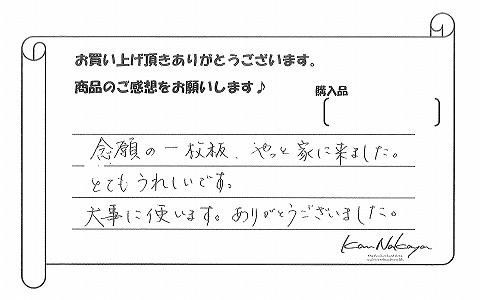 お買い上げ頂きありがとうございます。
商品のご感想をお願いします♪
購入品
念願の一枚板、やっと家に来ました。
とてもうれしいです。
大事に使います。ありがとうございました。